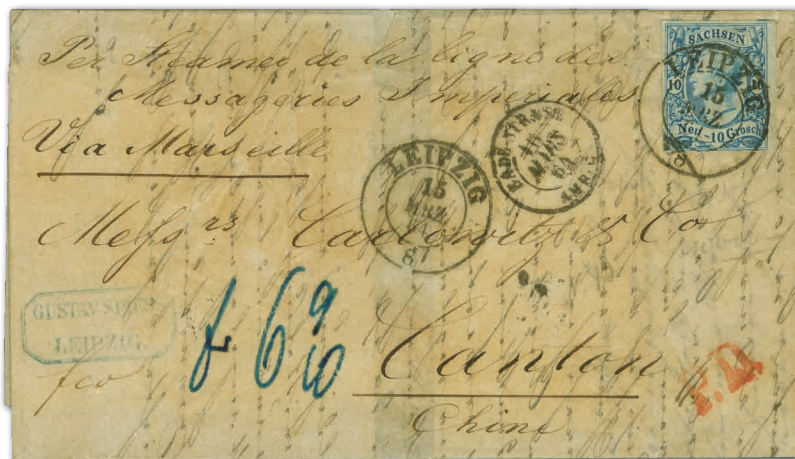 Per Steamer de la ligne des
Messageries Imperiales
Via Marseille
SACHSEN
10
Neu-10 Grosch
LEIPZIG
15
MRZ
LEIPZIG
15
MRZ
MARS
AMB. C
Messrs Carlowitz & Co
GUSTAV
LEIPZIG.
fco
f 6 9/10
Canton
Chine
P.D.